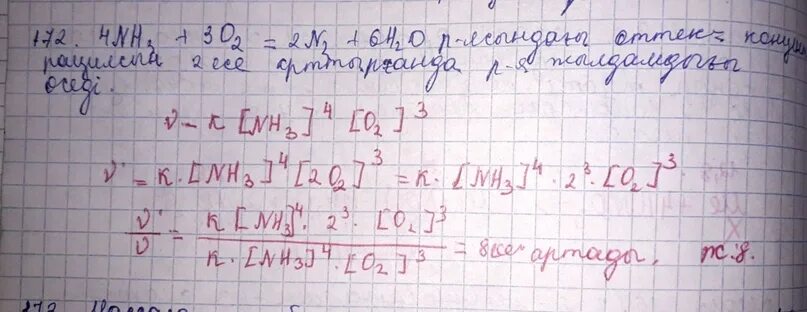 172. 4NH₃ + 3O₂ = 2N₂ + 6H₂O р-ясындағы оттек=
рациясын 2 есе арттырғанда р-я жылдамдығы
өседі.
υ = k [NH₃]⁴ [O₂]³
υ' = k·[NH₃]⁴[2O₂]³ = k·[NH₃]⁴·2³·[O₂]³
υ'/υ = k[NH₃]⁴·2³·[O₂]³ / k·[NH₃]⁴·[O₂]³ = 8 есе артады, ж: 8.